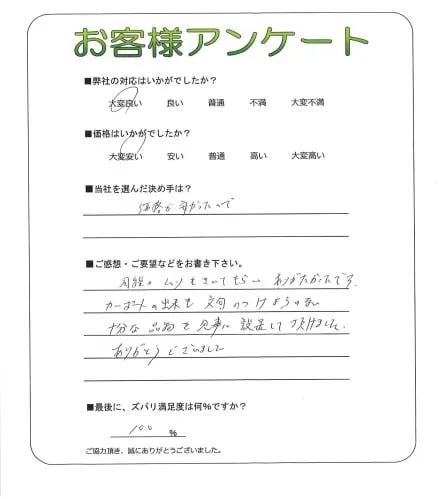 お客様アンケート
■弊社の対応はいかがでしたか？
大変良い 良い 普通 不満 大変不満
■価格はいかがでしたか？
大変安い 安い 普通 高い 大変高い
■当社を選んだ決め手は？
価格が安かったので
■ご感想・ご要望などをお書き下さい。
ムリもきいてもらい ありがたかったです。
カーポートの出来も文句のつけようのない
十分な品物を見事に設置して頂けました。
ありがとうございました
■最後に、ズバリ満足度は何%ですか？
100 %
ご協力頂き、誠にありがとうございました。